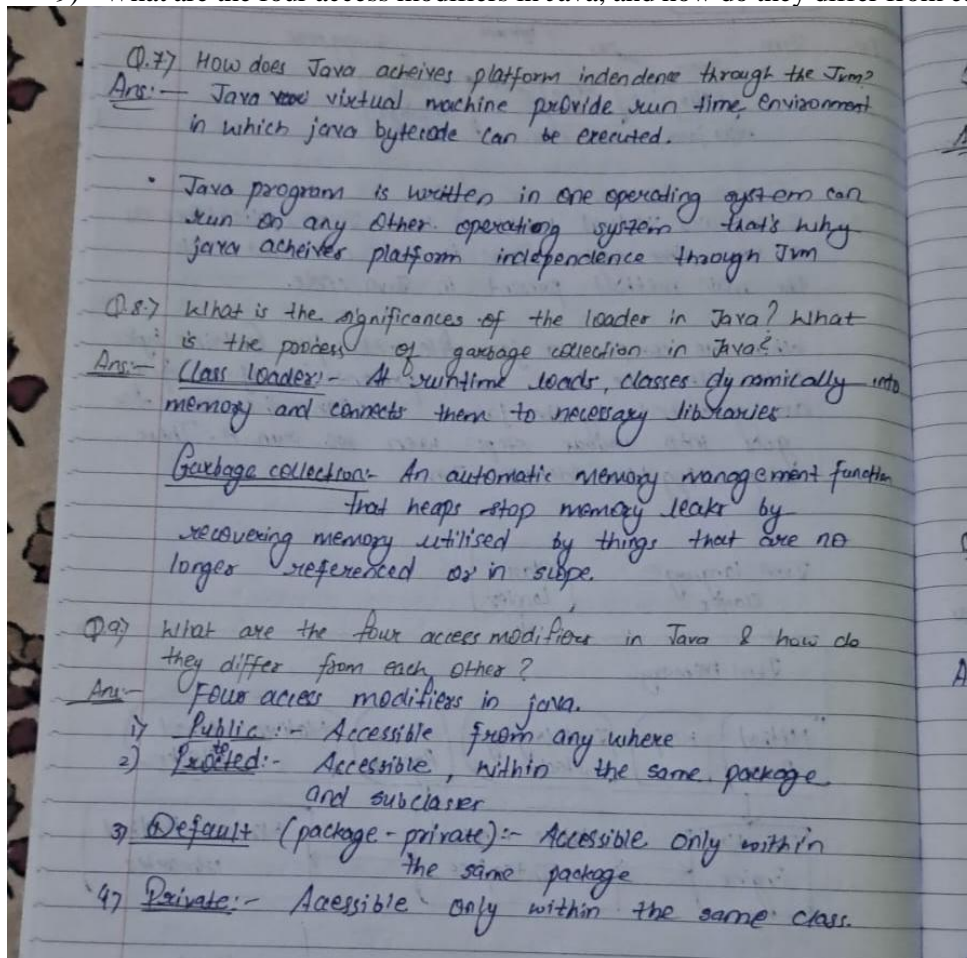 9) What are the four access modifiers in Java, and how do they differ from
Q.7) How does Java acheives platform indendence through the Jvm?
Ans:- Java virtual machine provide run time environment
in which java bytecode can be executed.
• Java program is written in one operating system can
run on any other operating system that's why
java acheives platform independence through Jvm
Q.8.) What is the significances of the loader in Java? What
is the poocess of garbage collection in Java?
Ans:- Class loader:- At runtime loads, classes dynamically into
memory and connects them to necessary libraries.
Garbage collection:- An automatic memory management function
that heaps stop memory leaks by
recovering memory utilised by things that are no
longer referenced or in scope.
Q.9) What are the four access modifiers in Java & how do
they differ from each other?
Ans:- Four access modifiers in java.
1) Public:- Accessible from any where
2) Protected:- Accessible, within the same package
and subclasses
3) Default (package-private):- Accessible only within
the same package
4) Private:- Accessible only within the same class.